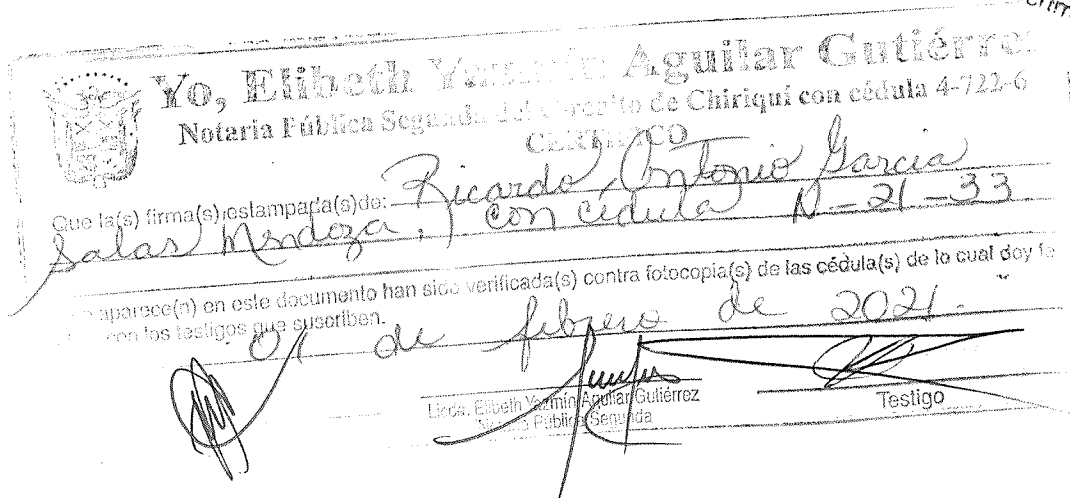 Yo, Elibeth Yazmín Aguilar Gutiérrez
Notaria Pública Segunda del Circuito de Chiriquí con cédula 4-722-6
CERTIFICO
Que la(s) firma(s) estampada(s) de: Ricardo Antonio Garcia
Salas Mendoza, con cédula N-21-33
aparece(n) en este documento han sido verificada(s) contra fotocopia(s) de las cédula(s) de lo cual doy fe
con los testigos que suscriben.
01 de febrero de 2021.
Licda. Elibeth Yazmín Aguilar Gutiérrez
Notaria Pública Segunda
Testigo